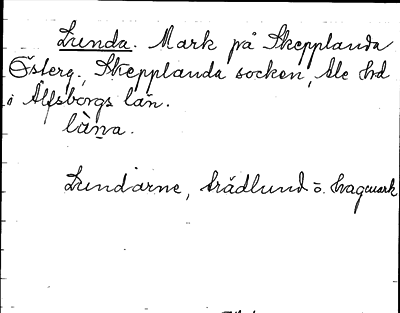 Lunda. Mark på Skepplanda
Österg., Skepplanda socken, Ale hd
i Älfsborgs län.
làna.
Lundarne, trädlund o. hagmark